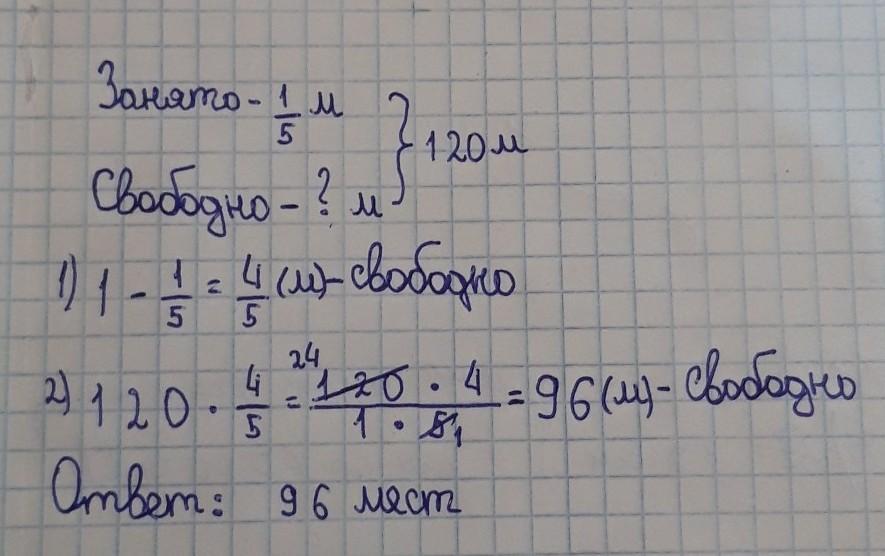 Занято - 1/5 м
Свободно - ? м } 120 м
1) 1 - 1/5 = 4/5 (м) - свободно
2) 120 · 4/5 = 24 120 · 4 / 1 · 5 1 = 96 (м) - свободно
Ответ: 96 мест